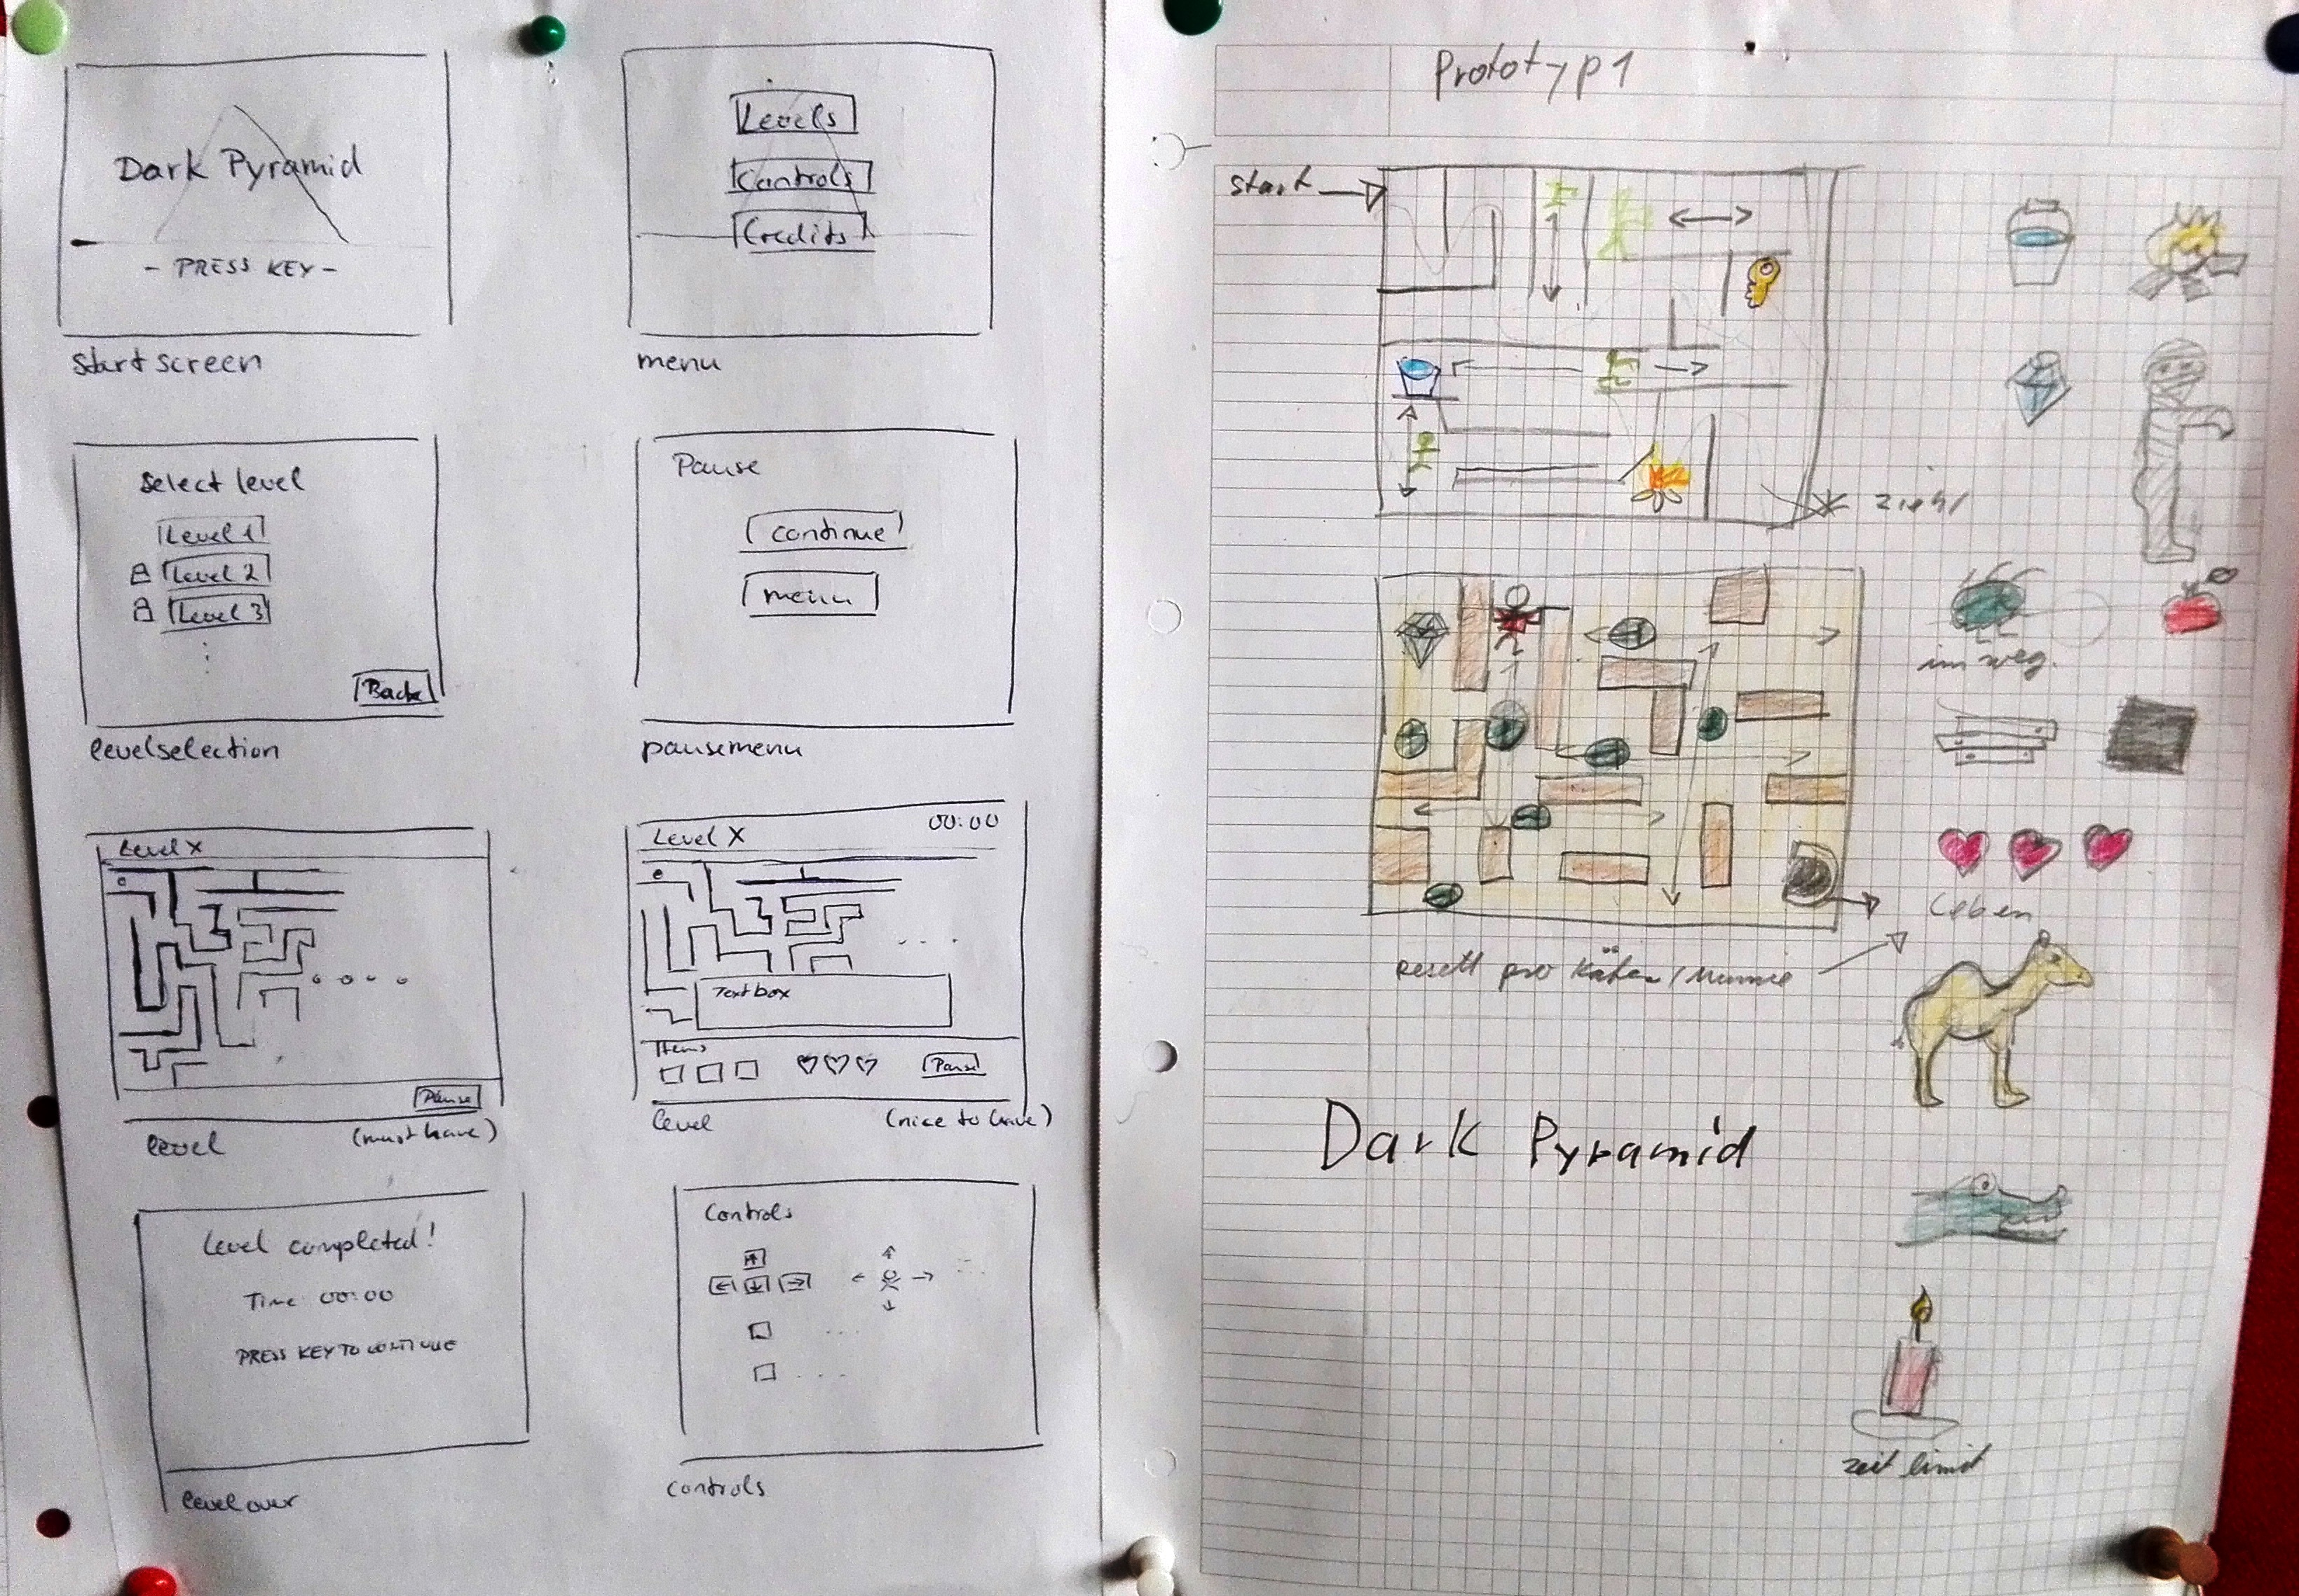 Dark Pyramid
- PRESS KEY -
start screen
Levels
Controls
Credits
menu
Select level
Level 1
Level 2
Level 3
Back
levelselection
Pause
continue
menu
pausemenu
Level X
Pause
level
(must have)
Level X 00:00
Textbox
Items
Pause
level
(nice to have)
Level completed!
Time 00:00
PRESS KEY TO CONTINUE
level over
Controls
controls
Prototyp 1
start
im weg.
Leben
resett pro Käfer / Mumie
Dark Pyramid
zeit limit